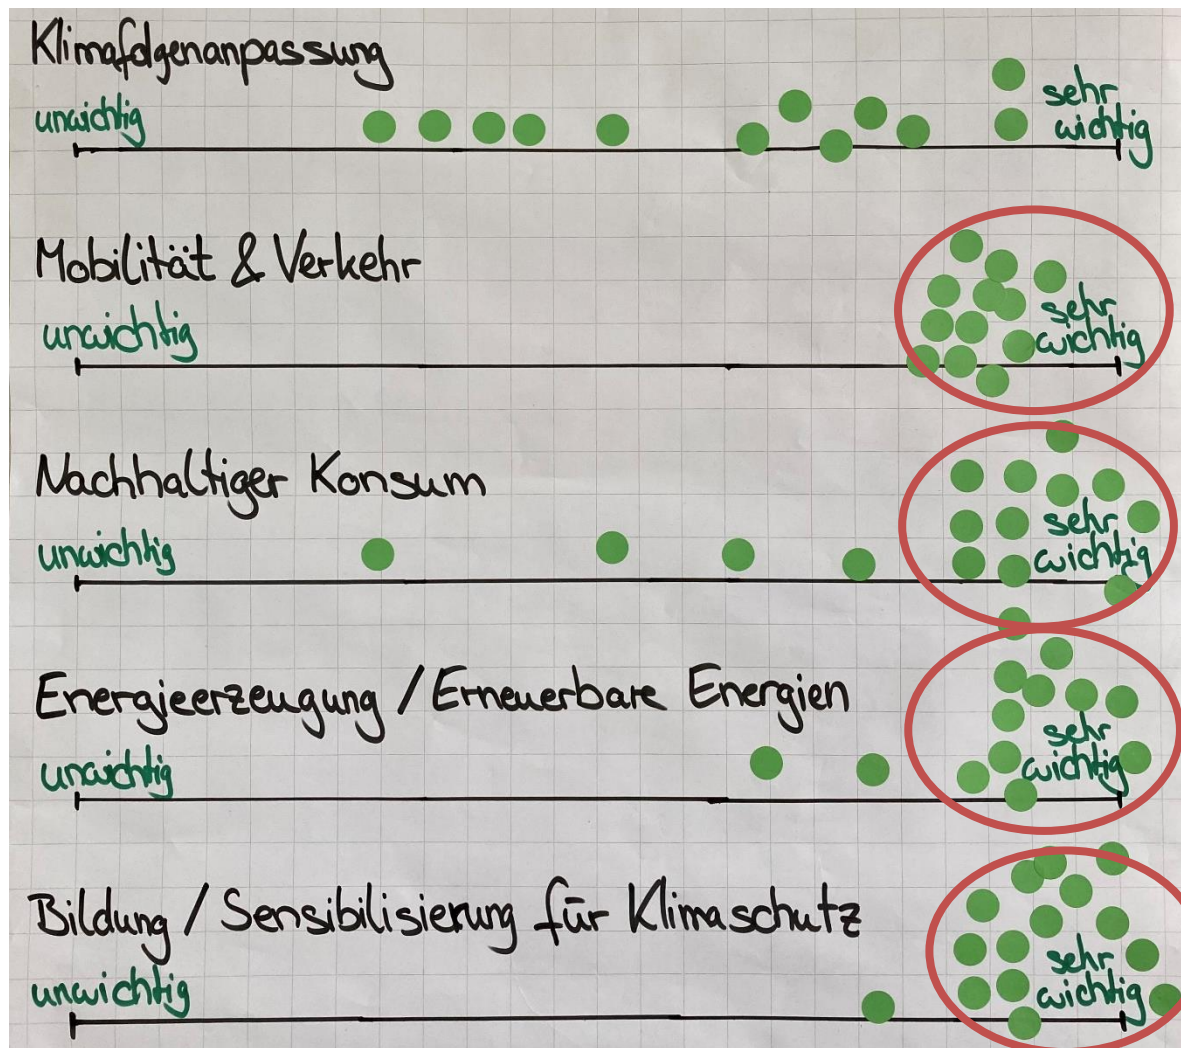 Klimafolgenanpassung
unwichtig
sehr
wichtig
Mobilität & Verkehr
unwichtig
sehr
wichtig
Nachhaltiger Konsum
unwichtig
sehr
wichtig
Energieerzeugung / Erneuerbare Energien
unwichtig
sehr
wichtig
Bildung / Sensibilisierung für Klimaschutz
unwichtig
sehr
wichtig